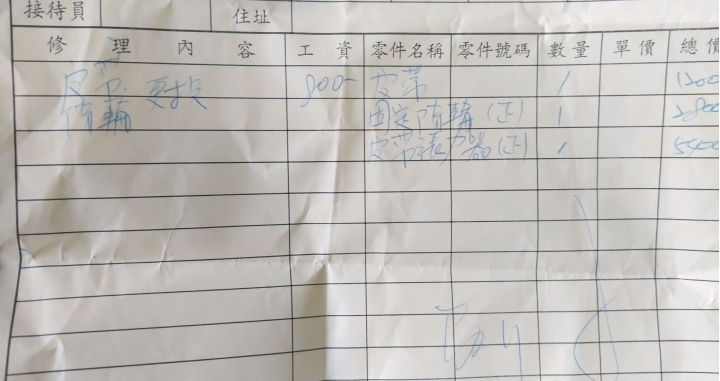 接待員 住址
修理內容 工資 零件名稱 零件號碼 數量 單價 總價
皮帶 更換 800- 皮帶 1 1200
惰輪 固定惰輪(正) 1 2800
皮帶張力器(正) 1 5400